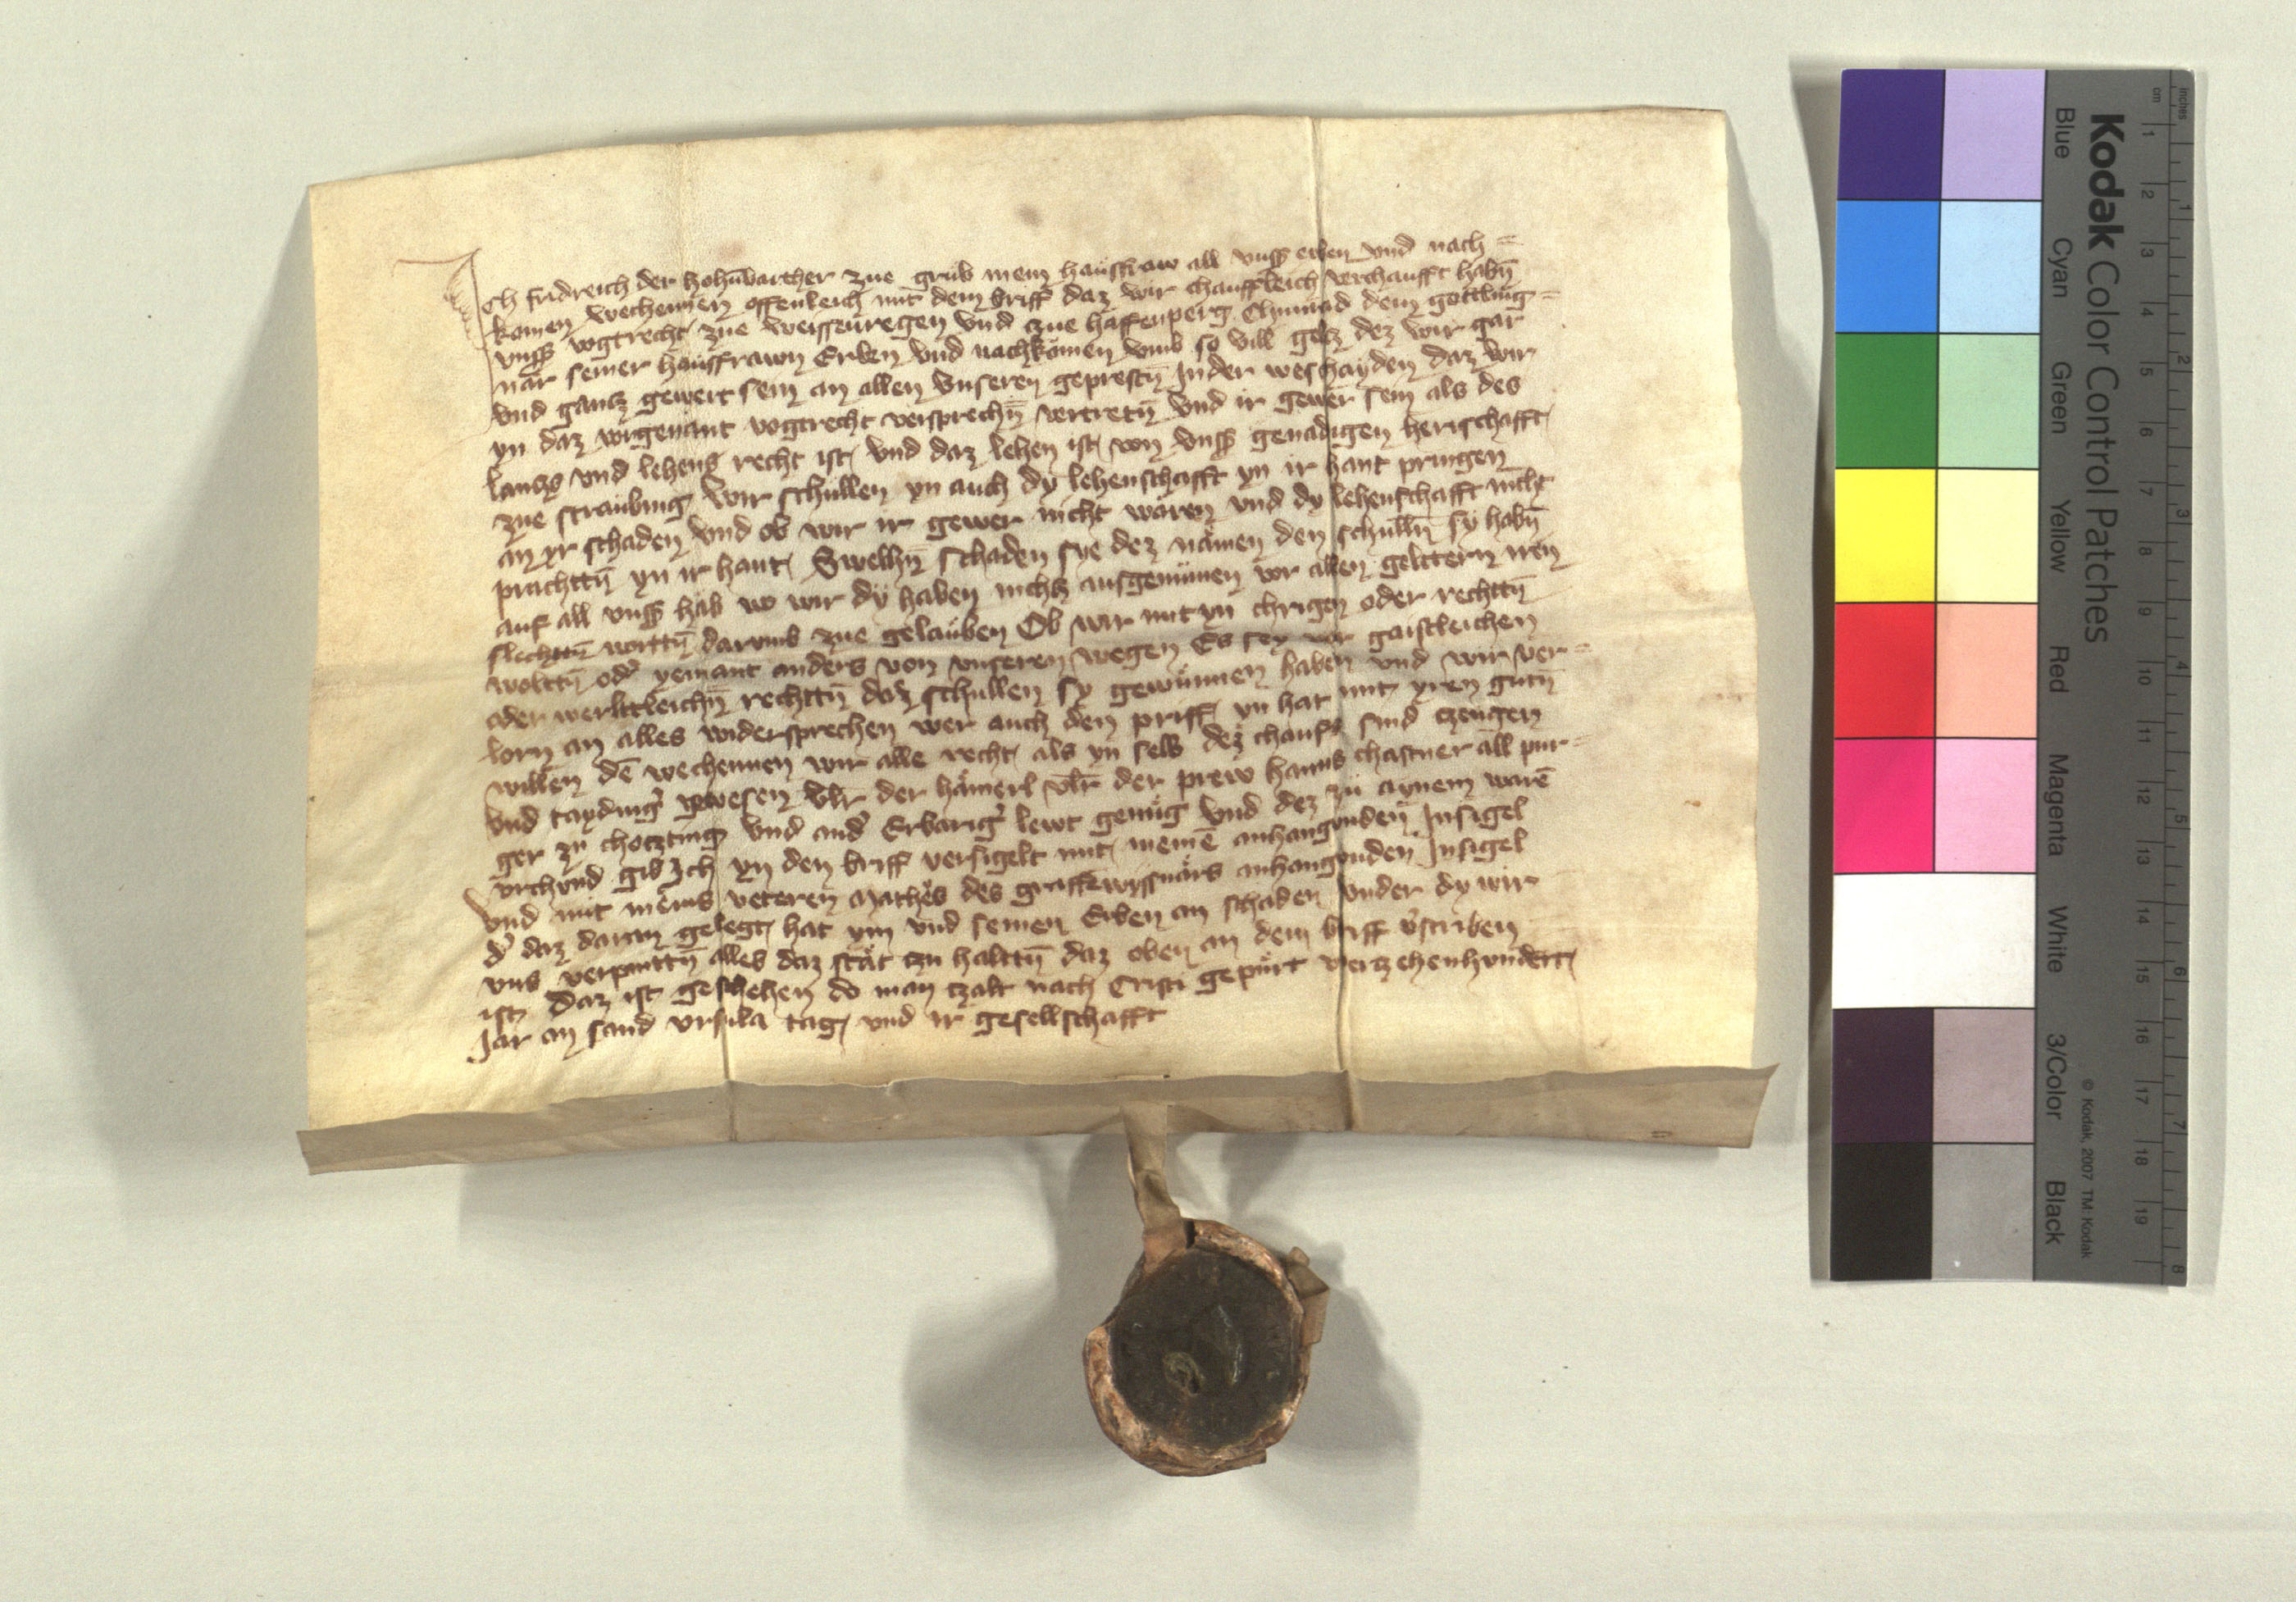 Ich fridreich der hohūbarther zue grub mein hausfraw all vnsß erben vnd nach=
komen wechennen offenleich mit dem briff daz wir chaufleich verchaufft habn̄
vnsß vogtrecht zue weissenregen vnd czue haffenperg Chunrad dem gottling=
nar seiner hausfrawn Erben vnd nachkömen vmb so vill gelz dez wir gar
vnd gantz gewert sein an allen vnseren geprestn̄ In der weschayden daz wir
yn daz vorgenant vogtrecht versprechn̄ vertretn̄ vnd ir gewer sein als des
lantz vnd lehens recht ist vnd daz lehen ist von vnsß genadigen herrschafft
zue straubing wir schullen yn auch dy lehenschafft yn ir hant pringen
an yr schaden vnd ob wir ir gewer nicht wären vnd dy lehenschafft nicht
prachttn̄ yn ir hant Swelhn̄ schaden sye dez nämen den schulln̄ sy habn̄
auf all vnsß hab wo wir dy haben nichtz ausgenumen vor allen gelttern iren
slechttn̄ worttn̄ darvmb zue gelauben Ob wir mit yn chrigen oder rechttn̄
wolttn̄ od' yemant anders von vnseren wegen Es sey vor gaistleichen
oder werlttleichn̄ rechttn̄ daz schullen sy gewunnen haben vnd wir ver=
lorn an alles widersprechen wer auch den priff yn hat mit yren gutn̄
willen dē wechennen wir alle recht als yn selb dez chaufs sind czeugen
vnd tayding' gewesen Vlr̄ der hämerl vlr̄ der prew hanns chastner all pur=
ger zu chotzting vnd and' Erbarig' lewt genüg vnd dez zu aynem warē
vrchund gib Ich yn den briff versigelt mit meinē anhangunden Insigel
vnd mit meins veteren Mathes des anhangunden Insigel
d' daz daran gelegt hat ym vnd seinen Erben an schaden vnder dy wir
vns verpanttn̄ alles daz stät czu halttn̄ daz oben an dem briff v'scriben
ist Daz ist geschehen do man czalt nach Cristi gepürt vierzehenhundert
Jar an sand vrsula tag vnd ir gesellschafft
Kodak Color Control Patches
Blue Cyan Green Yellow Red Magenta White 3/Color Black
© Kodak, 2007 TM: Kodak
cm 1 2 3 4 5 6 7 8 9 10 11 12 13 14 15 16 17 18 19
inches 1 2 3 4 5 6 7 8